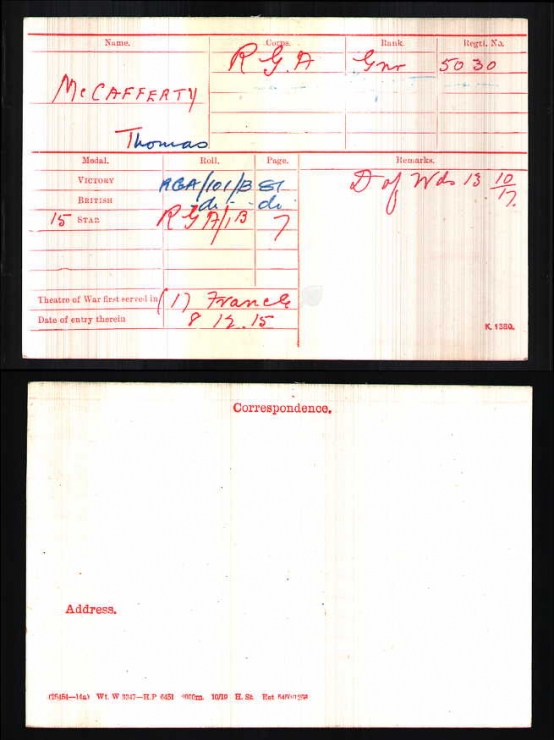 Name. Corps. Rank. Regtl. No.
R G.A Gnr 5030
McCAFFERTY
Thomas
Medal. Roll. Page. Remarks.
VICTORY RGA/101/B
BRITISH do - do -
15 STAR RGA/1B 7
D of Wds 13 10/17.
Theatre of War first served in (1) France
Date of entry therein 8.12.15
K. 1380.
Correspondence.
Address.
Wt. W 3347—H.P 6451 10/19 H. St.